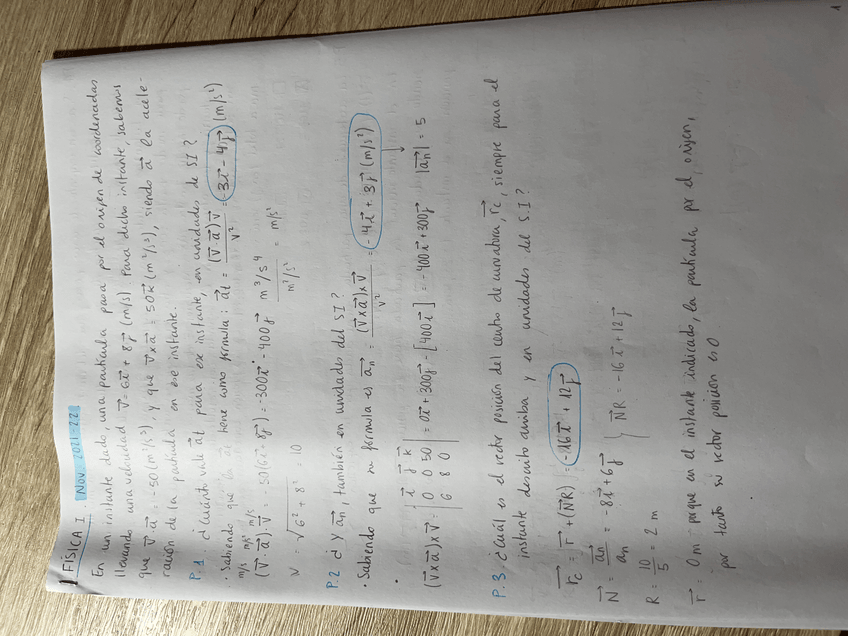 FÍSICA I. Nov. 2021-22
En un instante dado, una partícula pasa por el origen de coordenadas
llevando una velocidad v⃗ = 6i⃗ + 8j⃗ (m/s) Para dicho instante, sabemos
que v⃗·a⃗ = -50 (m²/s³), y que v⃗×a⃗ = 50k⃗ (m²/s³), siendo a⃗ la acele-
ración de la partícula en ese instante.
P.1. ¿Cuánto vale a⃗t para ese instante, en unidades de SI?
· Sabiendo que la at tiene como fórmula: a⃗t = (v⃗·a⃗)v⃗ / v² = -3i⃗ - 4j⃗ (m/s²)
m/s m/s² m/s
(v⃗·a⃗)·v⃗ = -50(6i⃗ + 8j⃗) = -300i⃗ - 400j⃗ m³/s⁴ / m²/s² = m/s²
v = √6² + 8² = 10
P.2 ¿Y a⃗n, también en unidades del SI?
· Sabiendo que su fórmula es a⃗n = (v⃗×a⃗)×v⃗ / v² = -4i⃗ + 3j⃗ (m/s²)
· (v⃗×a⃗)×v⃗ = | i⃗ j⃗ k⃗ | 0 0 50 | 6 8 0 | = 0i⃗ + 300j⃗ - [400i⃗] = -400i⃗ + 300j⃗ |a⃗n| = 5
P.3. ¿Cuál es el vector posición del centro de curvatura, r⃗c, siempre para el
instante descrito arriba y en unidades del S.I?
r⃗c = r⃗ + (N⃗R) = -16i⃗ + 12j⃗
N⃗ = a⃗n / an = -8i⃗ + 6j⃗
R = 10/5 = 2 m } N⃗R = -16i⃗ + 12j⃗
r⃗ = 0 m porque en el instante indicado, la partícula por el origen,
por tanto su vector posición es 0
1